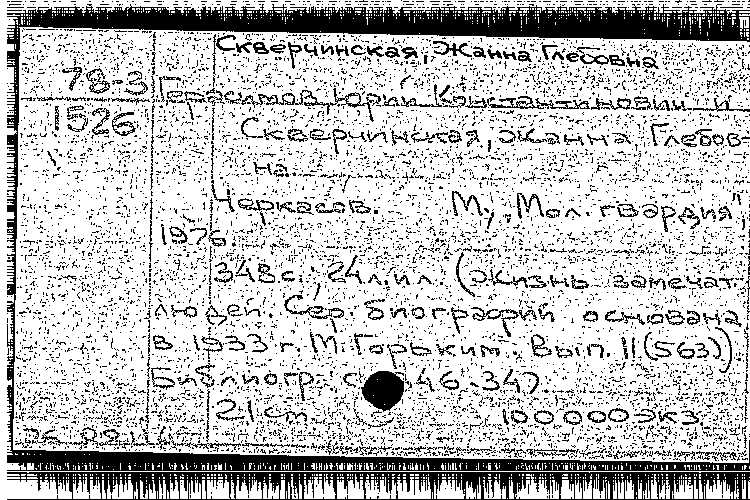 Скверчинская, Жанна Глебовна
78-3
1526
Герасимов, Юрий Константинович и
Скверчинская, Жанна Глебов-
на.
Черкасов. М., "Мол. гвардия",
1976
348 с.; 24 л. ил. (Жизнь замечат.
людей. Сер. биографий основана
в 1933 г. М. Горьким. Вып. 11(563)).
Библиогр.: с. 346-347
21 см 100 000 экз.